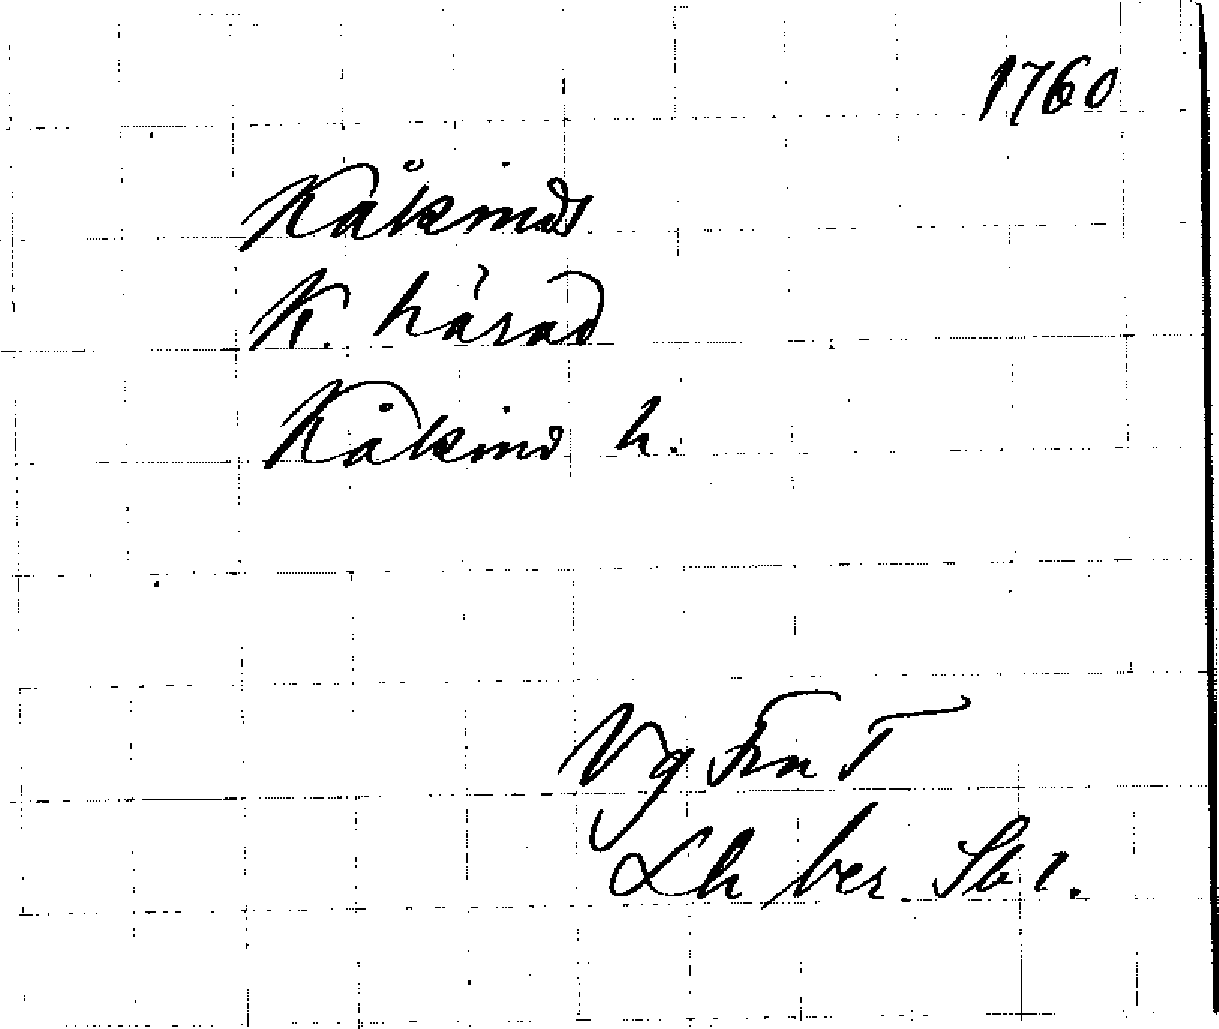 1760
Kåkinds
K. härad
Kåkind h.
Vg Frn T
Lh ber. Sb 1.